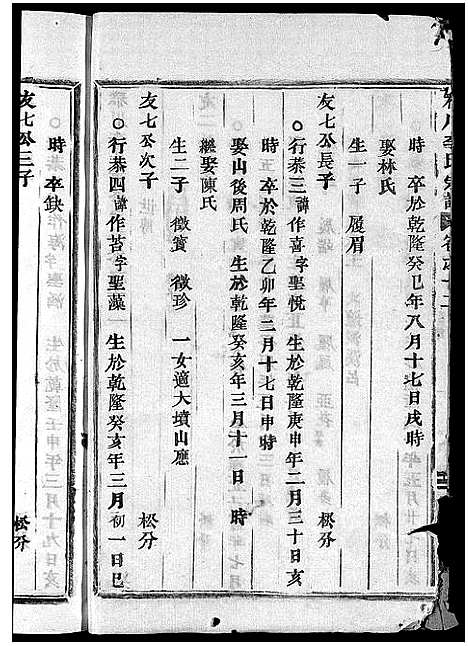 時 卒於乾隆癸巳年八月十七日戌時
娶林氏
生一子 履眉
友七公長子 松分
○行恭三諱作喜字聖悅 生於乾隆庚申年二月三十日亥
時 卒於乾隆乙卯年三月十七日申時
娶山後周氏 生於乾隆癸亥年三月十一日 時
繼娶陳氏
生二子 徵賓 徵珍 一女適大墳山應
友七公次子 松分
○行恭四諱作苔字聖藻 生於乾隆癸亥年三月初一日巳
時 卒缺
友七公三子 松分